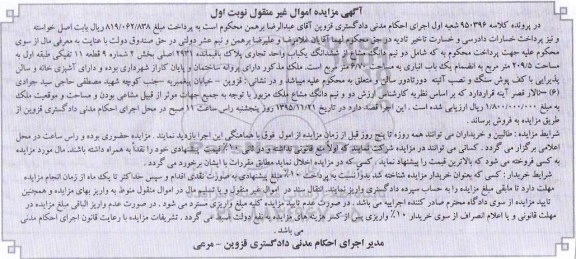 آگهی مزایده اموال غیر منقول نوبت اول
در پرونده کلاسه ۹۵۰۳۹۶ شعبه اول اجرای احکام مدنی دادگستری قزوین آقای عبدالرضا برهمن محکوم است به پرداخت مبلغ ۸۱۹/۰۶۲/۸۳۸ ریال بابت اصل خواسته
و نیز پرداخت خسارات دادرسی و خسارت تاخیر تادیه در حق محکوم لهما آقایان غلامرضا و علیرضا برهمن و نیم عشر دولتی در حق صندوق دولت با عنایت به معرفی مال از سوی
محکوم علیه جهت پرداخت محکوم به که شامل دو نیم دانگ مشاع از ششدانگ یکباب واحد تجاری پلاک باقیمانده ۲۹۳۱ اصلی بخش ۲ شماره ۹ قطعه ۱۱ تفکیکی طبقه اول به
مساحت ۲۰۹/۵ متر مربع به انضمام یک باب انباری به مساحت متر مربع است. ملک مذکور دارای پروانه ساختمان و پایان کار از شهرداری بوده و دارای آشپزی خانه و سالن
پذیرایی با کف پوش سنگ و نصب آئینه دورتادور سالن و متعلق به محکوم علیه میباشد و در نشانی : قزوین – خیابان بنیاد کوچه شهید مصطفی حاجی سید جوادی
(۶) –تالار قصر آینه قرارداد که بر اساس نظریه کارشناس ارزش دو و نیم دانگ مشاع ملک مزبور با توجه به جمیع جهات موثر از قبیل مشاعی بودن و مساحت و موقعیت ملک
به مبلغ ۱/۸۰۰/۰۰۰/۰۰۰ ریال ارزیابی شده است . این اجرا قصد دارد در تاریخ ۱۳۹۵/۱۱/۲۱ روز پنجشنبه راس ساعت ۱۱ صبح در محل اجرای احکام مدنی دادگستری قزوین از
طریق مزایده به فروش برساند.
شرایط مزایده : طالبین و خریداران می توانند همه روزه تا پنج روز قبل از زمان مزایده از اموال فوق با هماهنگی این اجرا بازدید نمایند . مزایده حضوری بوده و راس ساعت در محل
اعلامی برگزار می گردد . کسانی می توانند در مزایده شرکت نمایند که اولا منع قانونی نداشته و در ثانی ۱۰٪ قیمت پیشنهادی خود را نقدا به همراه داشته باشند. مال مورد مزایده
به کسی فروخته می شود که بالاترین قیمت را پیشنهاد نماید . کسی که در مزایده اخلال نماید مطابق مقررات با ایشان برخورد می گردد .
شرایط خریدار : کسی که بعنوان خریدار مزایده شناخته شد بدوا نسبت به پرداخت ۱۰٪ مبلغ پیشنهادی به صورت نقدی اقدام و سپس حداکثر تا یک ماه از زمان انجام مزایده
مهلت دارد تا مابقی مبلغ مزایده را به حساب سپرده دادگستری واریز نماید. انتقال سند در اموال غیر منقول و یا تسلیم مال در اموال منقول منوط به واریز بهای مزایده و همچنین
تایید مزایده از سوی دادگاه محترم صادر کننده اجراییه می باشد . در صورت عدم تایید مزایده کلیه مبلغ واریزی مسترد می شود . در صورت عدم واریز الباقی مبلغ مزایده در
مهلت قانونی و یا اعلام انصراف از سوی خریدار ۱۰٪ واریزی پس از کسر هزینه های مزایده به نفع دولت ضبط می گردد . تشریفات مزایده با رعایت قانون اجرای احکام مدنی
می باشد .
مدیر اجرای احکام مدنی دادگستری قزوین – مرعی